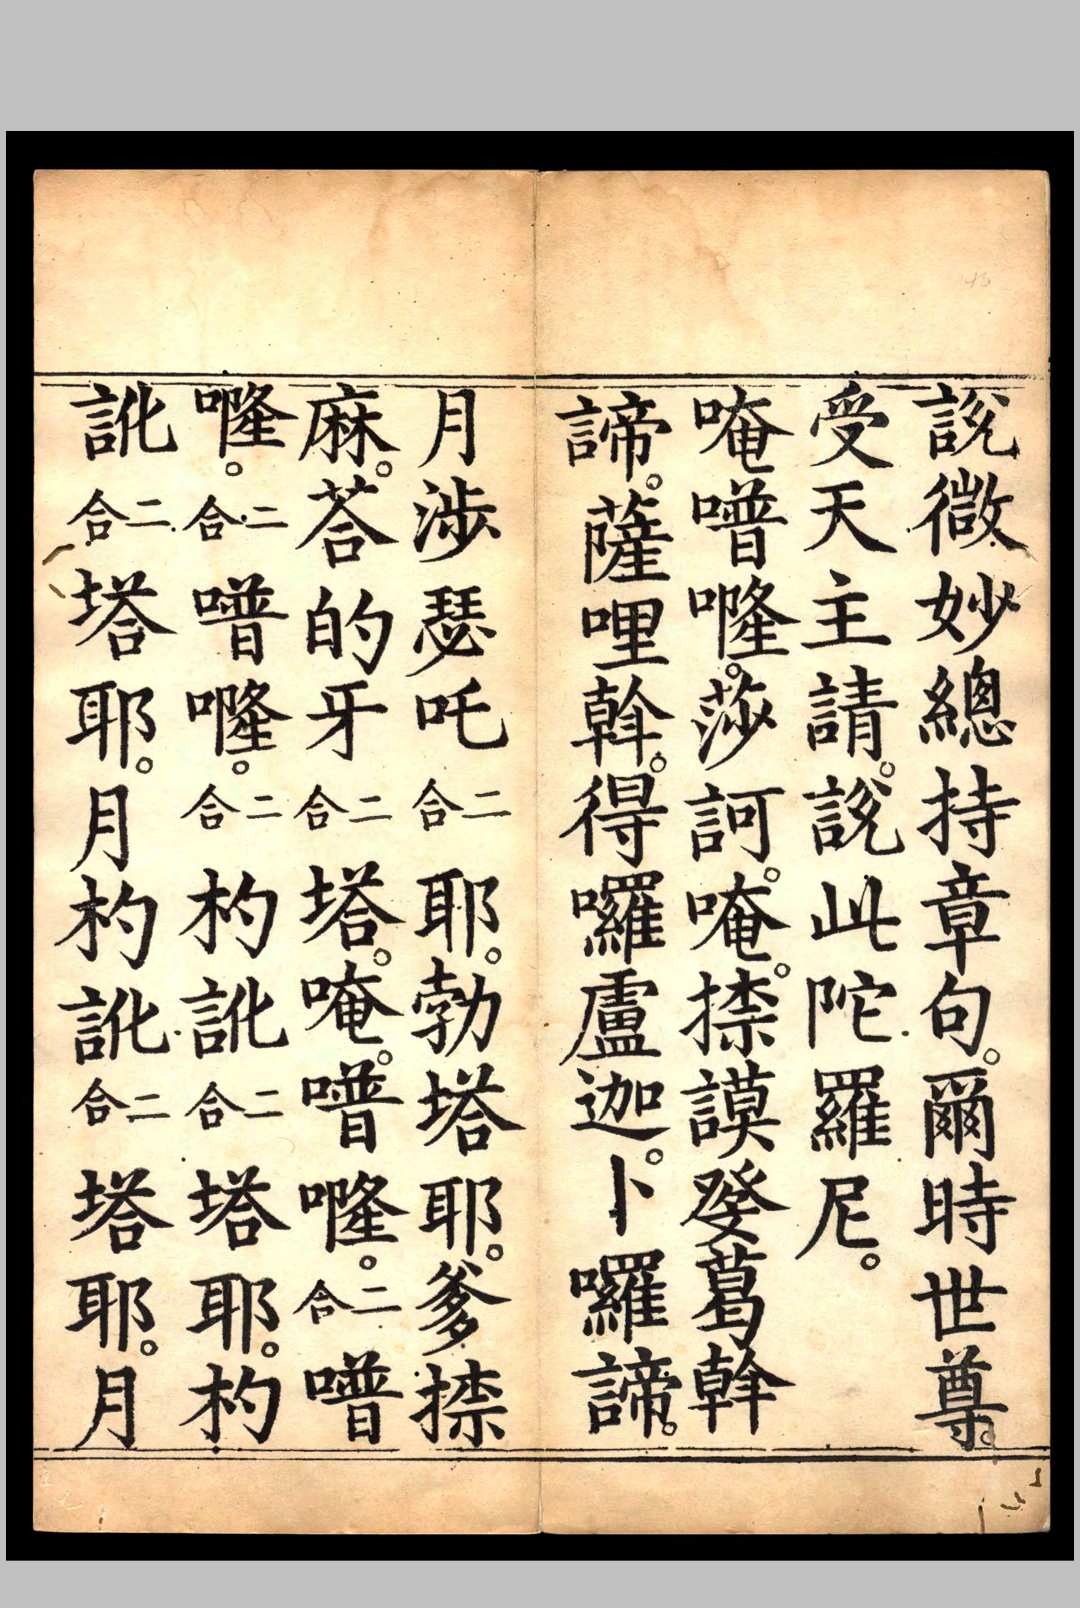 說微妙總持章句。爾時世尊。
受天主請。說此陀羅尼。
唵噆㘕。莎訶。唵。捺謨癹葛斡
諦。薩哩斡。得囉盧迦。卜囉諦。
月涉瑟吒二合耶。勃塔耶。爹捺
麻。荅的牙二合塔。唵。噆㘕。二合噆
㘕。二合噆㘕。二合杓訛二合塔耶。杓
訛二合塔耶。月杓訛二合塔耶。月